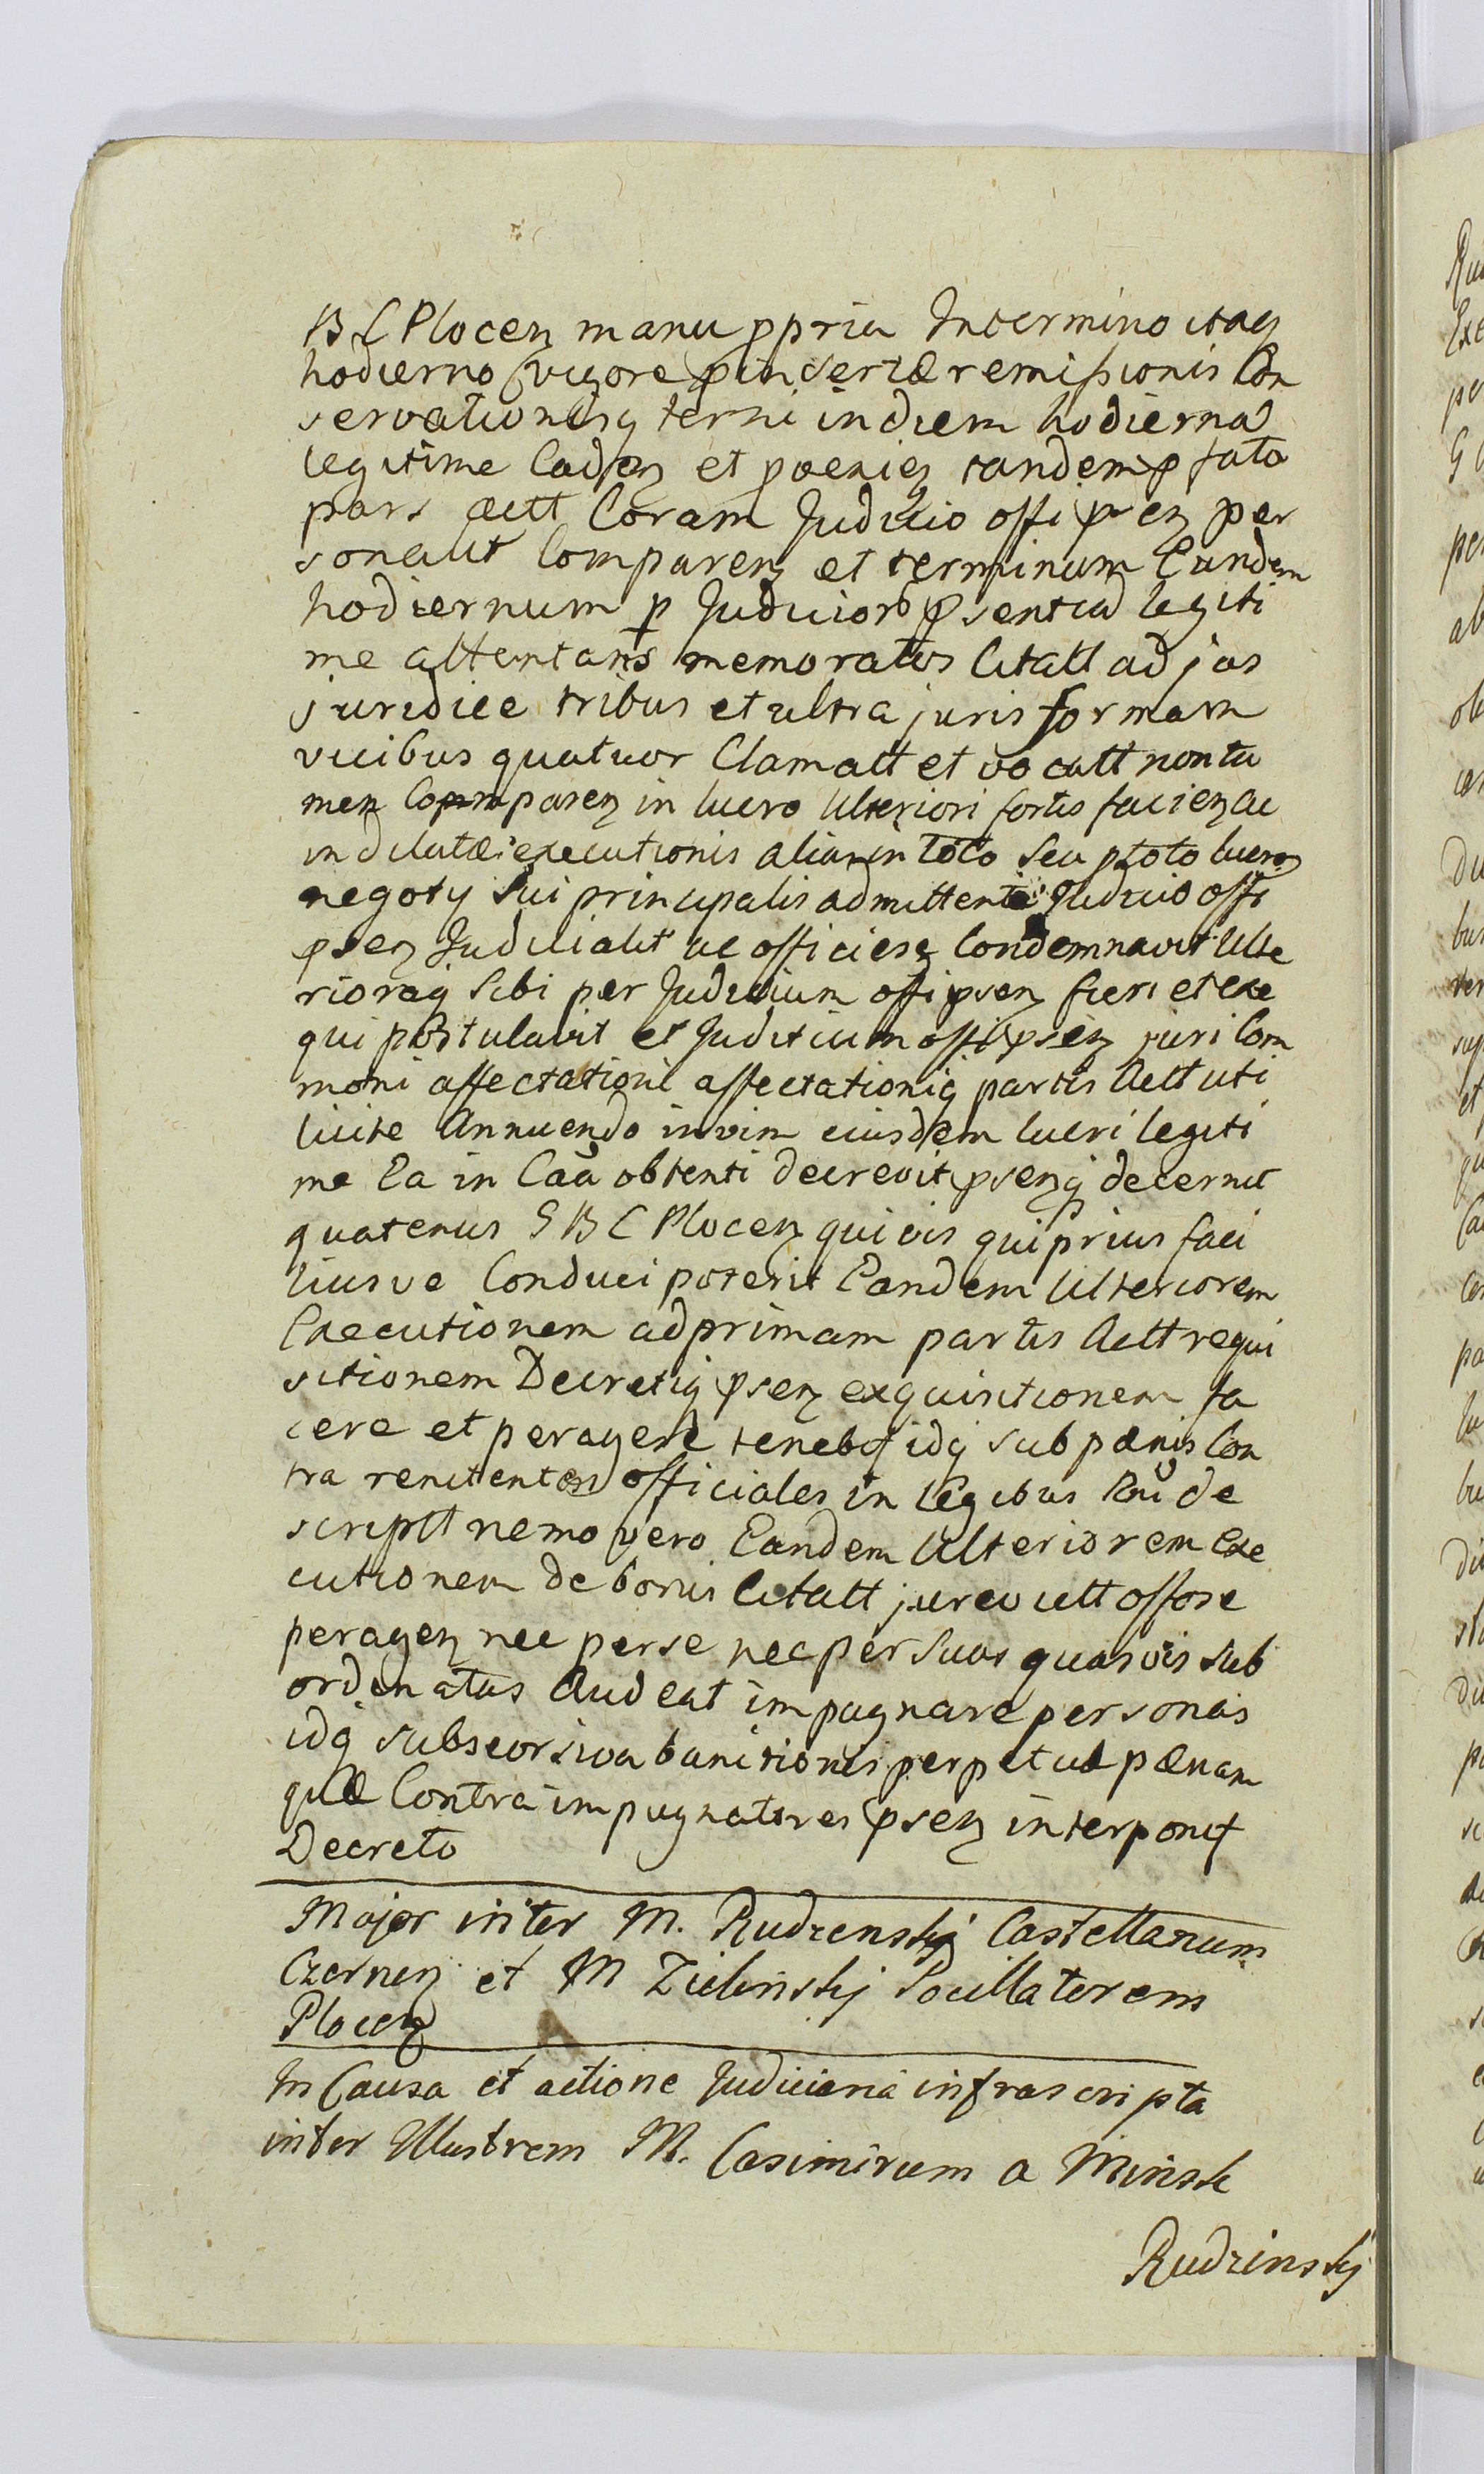 B C Plocen manu ppria Intermino itaq
hodierno vigore pinsertæ remissionis Con
servationisq termi in diem hodierna
legitime Caden et pvenien tandem pfata
pars actt Coram Judicio offi psen per
sonalit Comparen et terminum Eundem
hodiernum p Judicior psentia legiti
me attentans memoratos Citatt ad jus
juridice tribus et ultra juris formam
vicibus quatuor Clamatt et vocatt non ta
men Comparen in lucro Ulteriori fortis facien ac
indilatæ executionis alian in toto seu ptoto lucro
negoty Sui principalis admittenti Judicio offi
psen Judicialit ac officiose Condemnavit Ulte
rioraq Sibi per Judicium offi psen fieri et exe
qui postulavit et Judicium offi psen juri Com
moni affectationi affectationiq partis Actt uti
licite Annuendo in vim eiusdem lucri legiti
me Ea in Caa obtenti decrevit psenq decernit
quatenus S B C Plocen quivis qui prius faci
liusve Conduci poterit Eandem Ulteriorem
Executionem ad primam partis Actt requi
sitionem Decretiq psen exquisitionem fa
cere et peragere teneb idq sub pænis Con
tra renitentes officiales in legibus Rni de
scriptt nemo vero Eandem Ulteriorem Exe
cutionem de bonis Citatt jurevictt offose
peragen nec per se nec per Suas quasvis sub
ordinatas Audeat impugnare personas
idq sub seorsiva banitionis perpetuæ pænam
quæ Contra impugnatores psen interponit
Decreto
Major inter M. Rudzenskij Castellanum
Czernen et M Zielinskij Pocillatorem
Plocen
In Causa et actione Judiciaria infrascripta
inter Illustrem M. Casimirum a Minsk
Rudzinskij